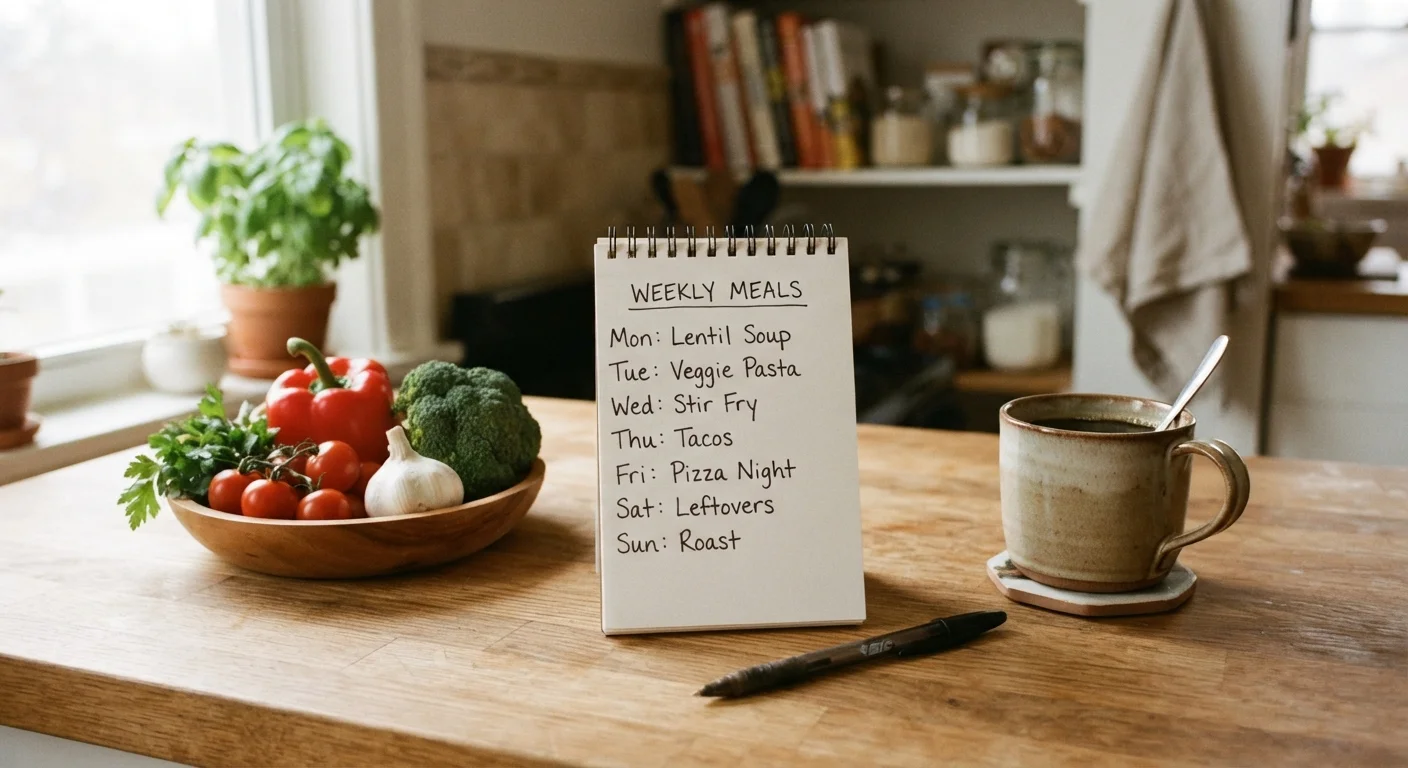 WEEKLY MEALS
Mon: Lentil Soup
Tue: Veggie Pasta
Wed: Stir Fry
Thu: Tacos
Fri: Pizza Night
Sat: Leftovers
Sun: Roast